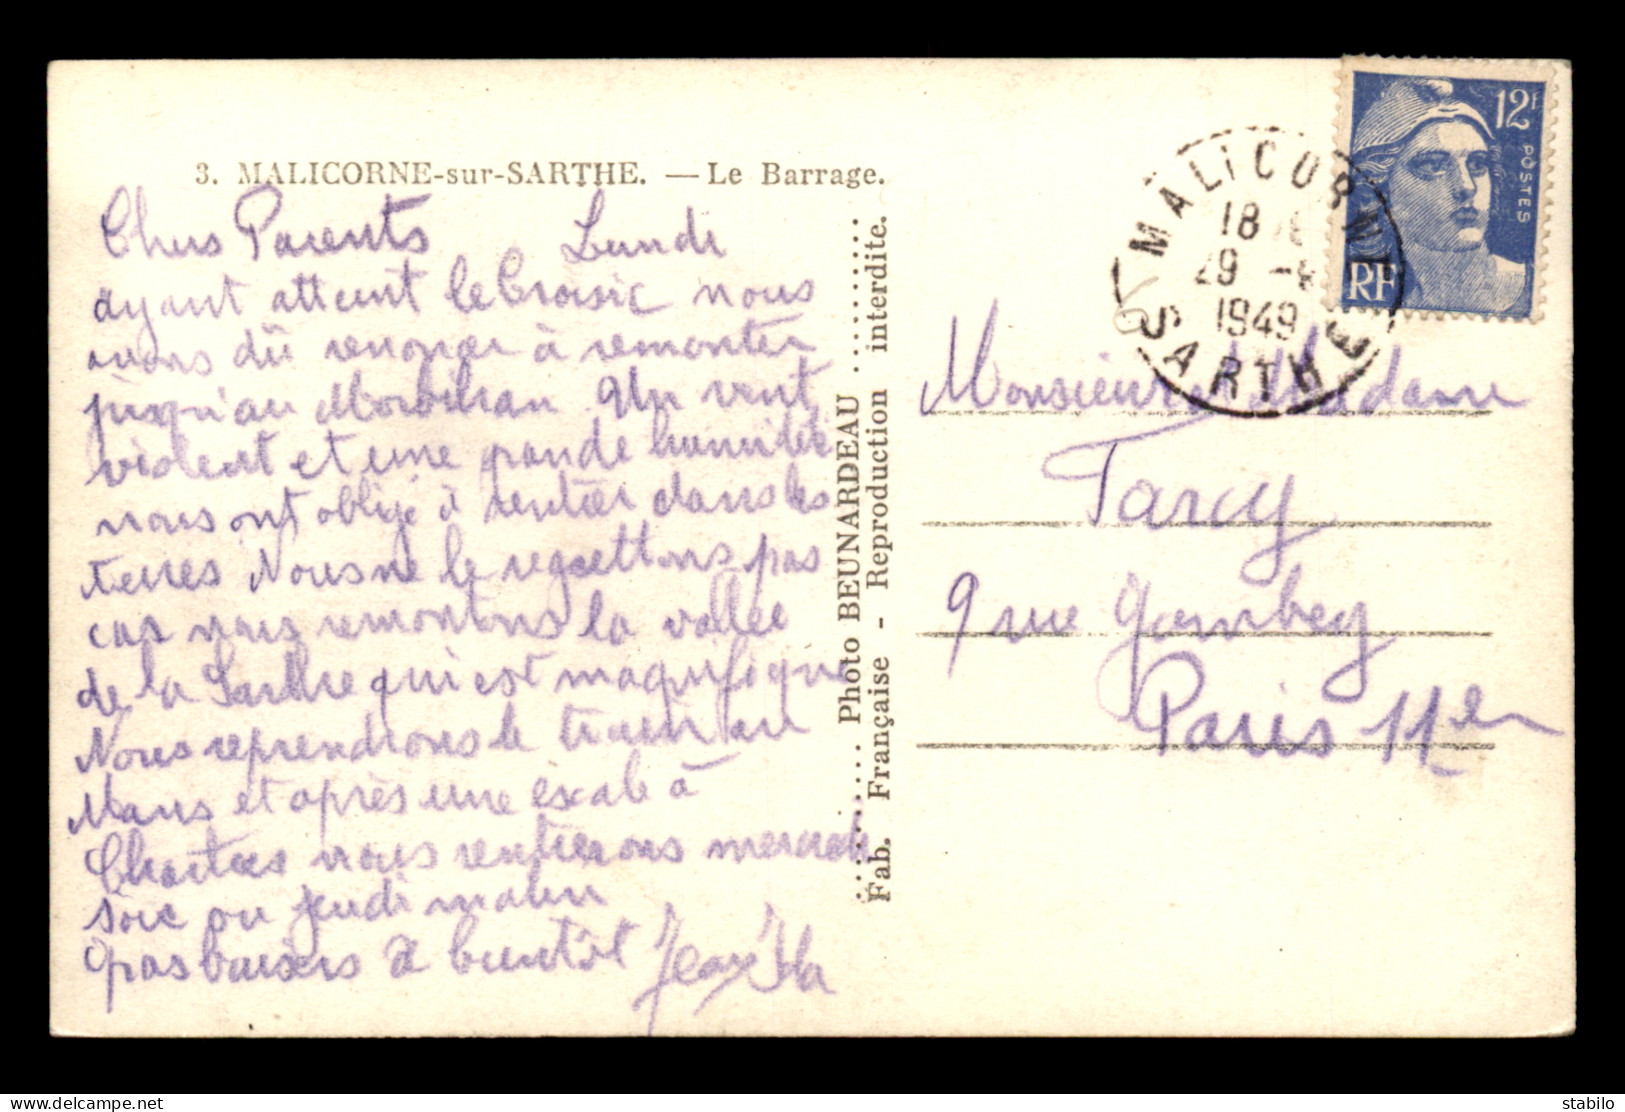 3. MALICORNE-sur-SARTHE. — Le Barrage.
Chers Parents Lundi
ayant atteint le Croisic nous
avons dû renoncer à remonter
jusqu'au Morbihan Un vent
violent et une grande humidité
nous ont obligé à rentrer dans les
terres Nous ne le regrettons pas
car nous remontons la vallée
de la Sarthe qui est magnifique
Nous reprendrons le train au
Mans et après une escale à
Chartres nous rentrerons mercredi
soir ou jeudi matin
gros baisers à bientôt Jean
Photo BEUNARDEAU
Fab. Française - Reproduction interdite.
MALICORNE
18
29 -8
1949
SARTHE
12F
POSTES
RF
Monsieur et Madame
Tarcy
9 rue Gambey
Paris 11e
delcampe.net
stabilo